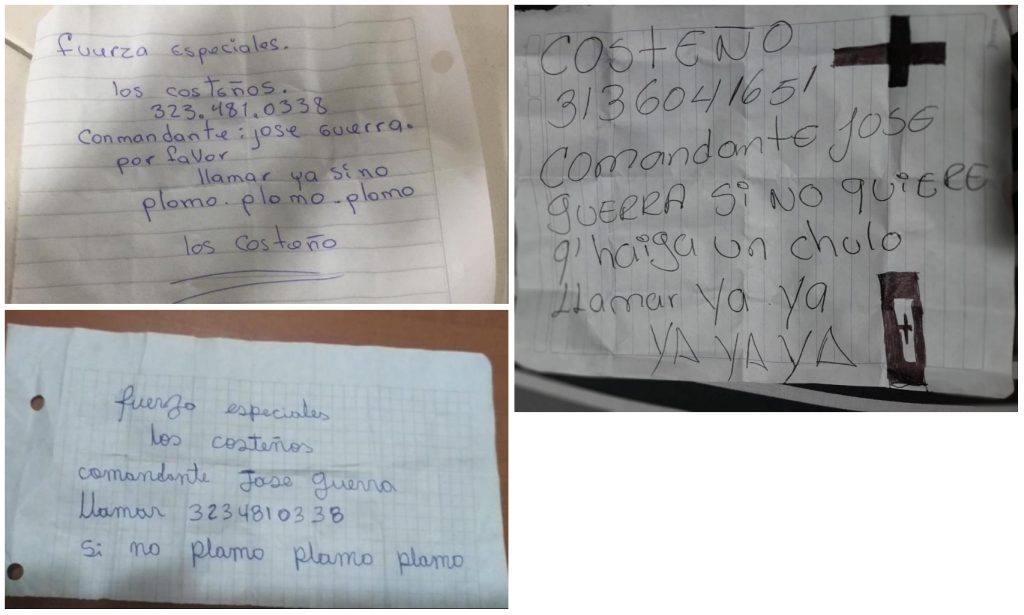 fuerza especiales.
los costeños.
323.481.0338
Conmandante: jose guerra.
por favor
llamar ya si no
plomo. plomo. plomo
los costeño
COSTEÑO
3136041651
Comandante JOSE
GUERRA Si NO QUiERE
q' haiga un chulo
LLamar Ya Ya
YA YA YA
fuerza especiales
los costeños
comandante Jose guerra
llamar 3234810338
Si no plamo plamo plamo